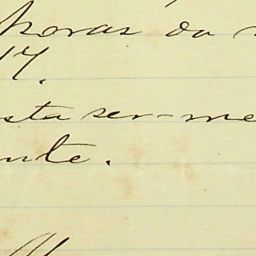 horas da
17.
sta ser-me
nte.